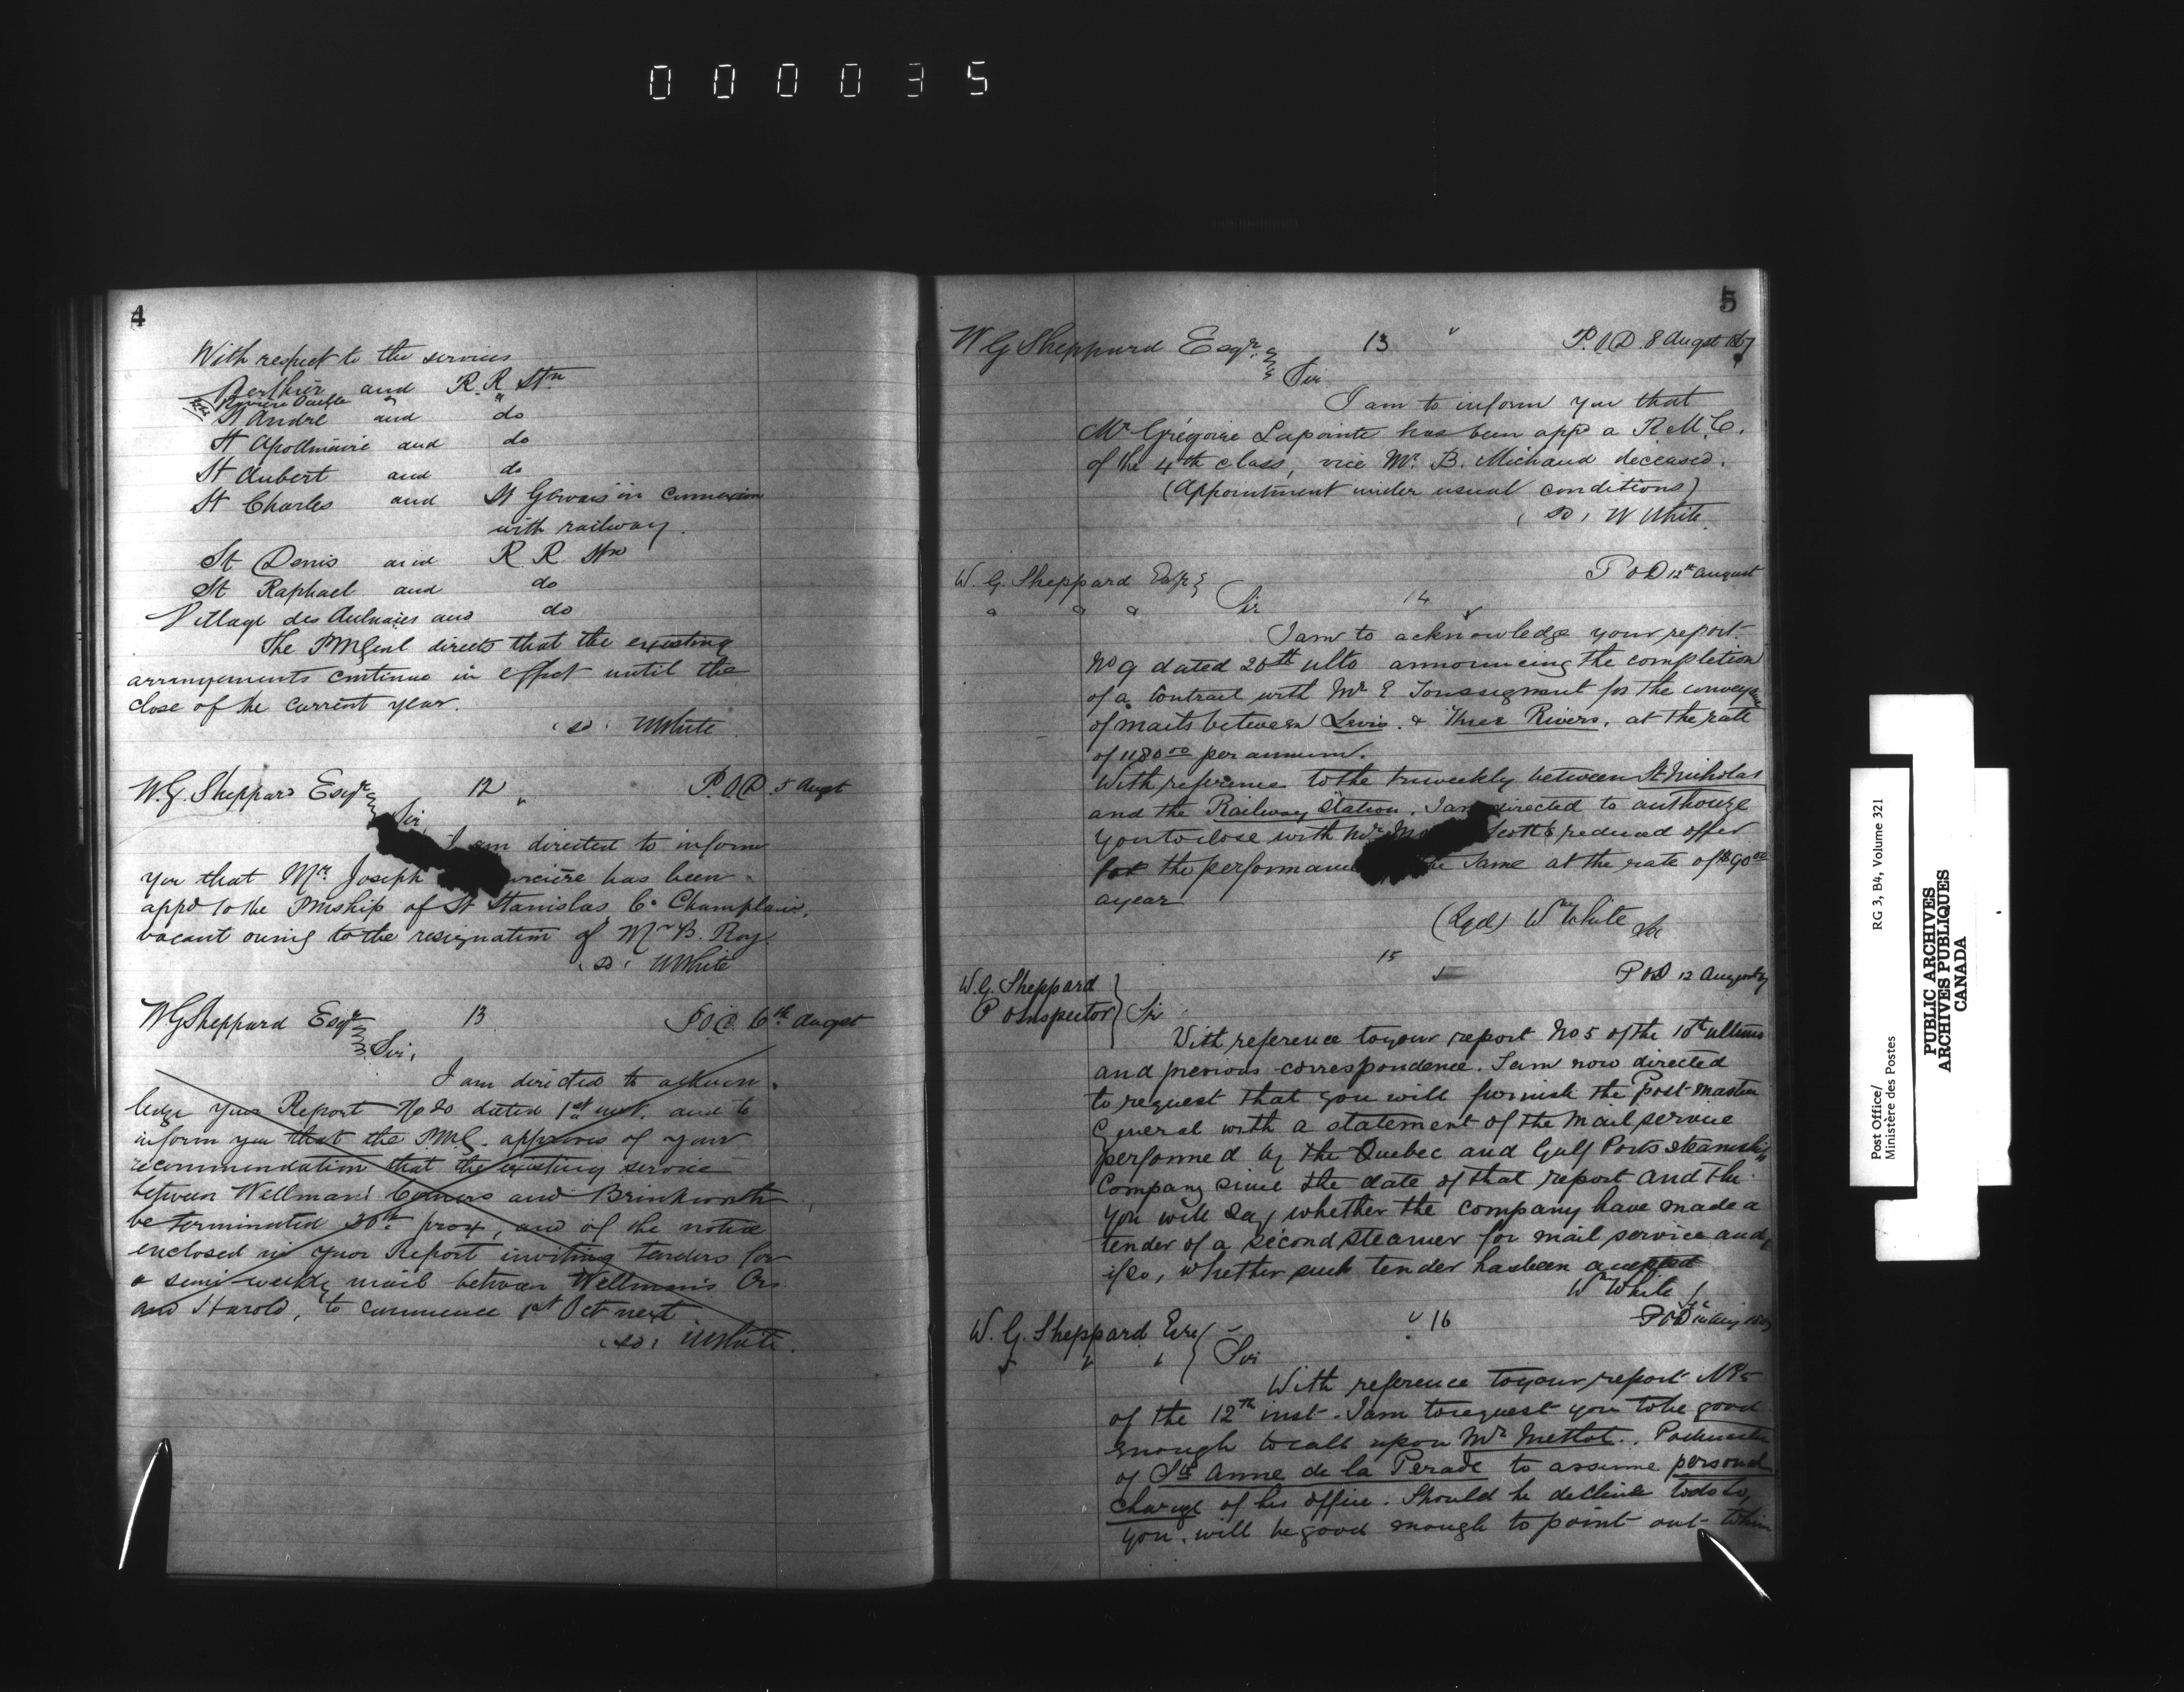 000035
4
With respect to the services
Berthier and R. R Stn
Rivière Ouelle "
St André and do
St Apollinaire and do
St Aubert and do
St Charles and St Gervais in connexion
with railway.
St Denis and R R Stn
St Raphael and do
Village des Aulnaies and do
The PMGenl directs that the existing
arrangements continue in effect until the
close of the current year.
(sd) WWhite
W. G. Sheppard Esqr 12 P.O.D. 5 Augt
Sir,
I am directed to inform
you that Mr. Joseph has been
appd to the PMship of St Stanislas, Co Champlain,
vacant owing to the resignation of Mr B. Roy.
(sd) WWhite
WGSheppard Esqr 13 P.O.D. 6th Augst
Sir,
I am directed to acknow-
ledge your Report No 20 dated 1st inst. and to
inform you that the PMG. approves of your
recommendation that the existing service
between Wellman's Corners and Brinkworth
be terminated 30th prox, and of the notice
enclosed in your Report inviting tenders for
a semi-weekly mail between Wellman's Crs
and Harold, to commence 1st Oct next
(sd) WWhite.
5
W G Sheppard Esqr. 13 P.O.D. 8 Augst 1867
Sir
I am to inform you that
Mr Grégoire Lapointe has been appd a R.M.C.
of the 4th class, vice Mr. B. Michaud deceased.
(Appointment under usual conditions)
(sd) W White.
W. G. Sheppard Esqr P O D 12th August
" " " Sir 14
I am to acknowledge your report
No 9 dated 20th ulto announcing the completion
of a contract with Mr E Toussignant for the conveyance
of mails between Levis & Three Rivers, at the rate
of 1180.00 per annum.
With reference to the triweekly between St Nicholas
and the Railway Station. I am directed to authorize
you to close with Mr Scott's reduced offer
for the performance the same at the rate of $90.00
a year
(Sgd) Wm White Sec
15
W. G. Sheppard P O D 12 August
P O Inspector Sir
With reference to your report No 5 of the 10th ultimo
and previous correspondence. I am now directed
to request that you will furnish the Post-master
General with a statement of the mail service
performed by the Quebec and Gulf Ports Steamship
Company since the date of that report and the
you will say whether the company have made a
tender of a second steamer for mail service and,
if so, whether such tender has been accepted
Wm White Sec
W. G. Sheppard Esqre 16 P O D
" " " Sir
With reference to your report No 5
of the 12th inst. I am to request you to be good
enough to call upon Mr Mettot. Postmaster
of Ste Anne de la Perade to assume personal
charge of his office. Should he decline to do so,
you will be good enough to point out to him
Post Office/
Ministère des Postes
RG 3, B4, Volume 321
PUBLIC ARCHIVES
ARCHIVES PUBLIQUES
CANADA